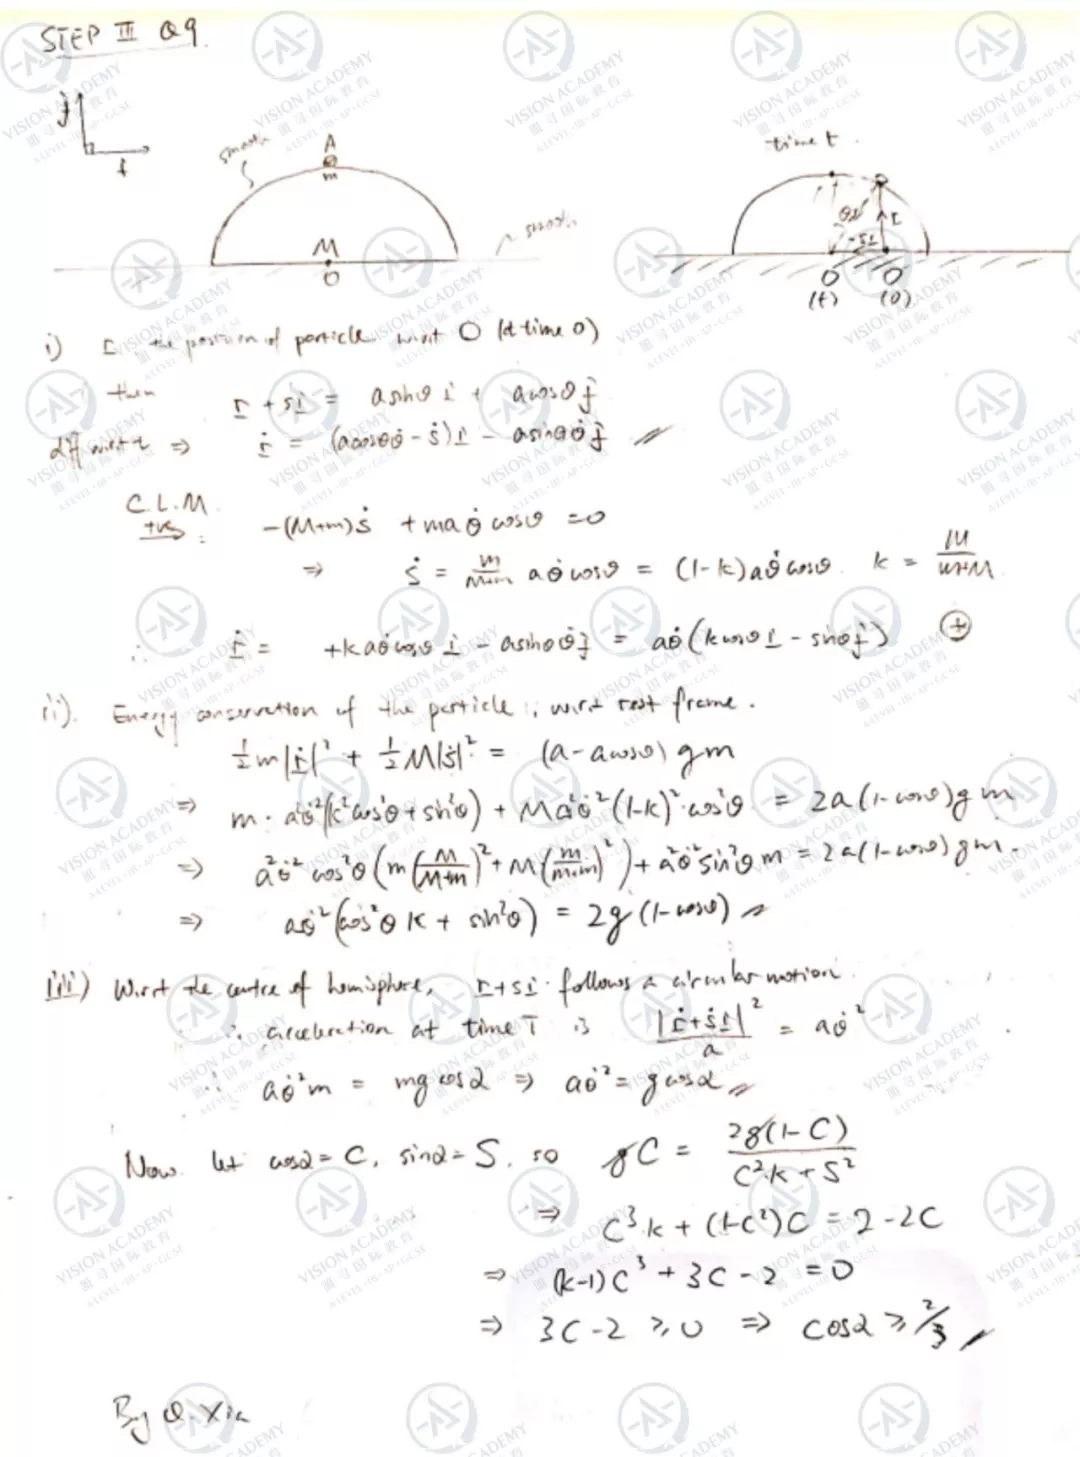 STEP III Q9.
j
i
smooth
A
m
M
O
smooth
time t.
a
r
-si
O
(t)
O
(0)
i) r the position of particle w.r.t O (at time 0)
then r + si = asinθ i + acosθ j
diff w.r.t t ⇒ ṙ = (acosθθ̇ - ṡ)i - asinθθ̇ j
C.L.M.
+ve: -(M+m)ṡ + maθ̇cosθ = 0
⇒ ṡ = m/(M+m) aθ̇cosθ = (1-k)aθ̇cosθ. k = M/(m+M)
∴ ṙ = +kaθ̇cosθ i - asinθθ̇ j = aθ̇(kcosθ i - sinθ j)
ii). Energy conservation of the particle: w.r.t rest frame.
½m|ṙ|² + ½M|ṡ|² = (a-acosθ)gm
⇒ m·a²θ̇²(k²cos²θ + sin²θ) + Ma²θ̇²(1-k)²·cos²θ = 2a(1-cosθ)gm
⇒ a²θ̇²cos²θ(m(M/(M+m))² + M(m/(m+m))²) + a²θ̇²sin²θm = 2a(1-cosθ)gm.
⇒ aθ̇²(cos²θk + sin²θ) = 2g(1-cosθ)
iii) W.r.t the centre of hemisphere, r+si follows a circular motion.
∴ acceleration at time T is |ṙ+ṡi|²/a = aθ̇²
∴ aθ̇²m = mg cosα ⇒ aθ̇² = g cosα
Now. let cosα = C, sinα = S, so gC = 2g(1-C)/(C²k+S²)
⇒ C³k + (1-C²)C = 2-2C
⇒ (k-1)C³ + 3C - 2 = 0
⇒ 3C-2 ≥ 0 ⇒ cosα ≥ 2/3
By Q. Xia
VISION ACADEMY
国际教育
A LEVEL·IB·AP·GCSE